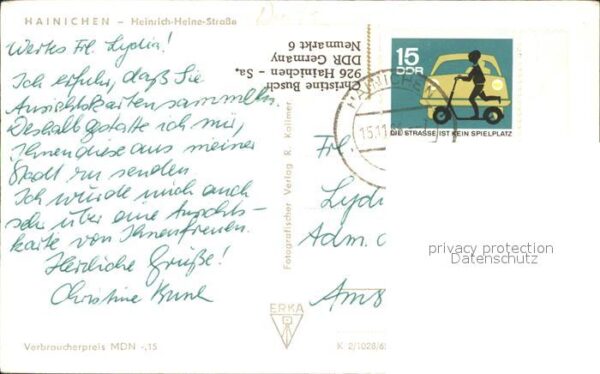 HAINICHEN – Heinrich-Heine-Straße
Wertes Frl. Lydia!
Ich erfuhr, daß Sie
Ansichtskarten sammeln.
Deshalb gestatte ich mir,
Ihnen diese aus meiner
Stadt zu senden
Ich würde mich auch
sehr über eine Ansichts-
karte von Ihnen freuen.
Herzliche Grüße!
Christine Busch
Verbraucherpreis MDN -,15
Christine Busch
926 Hainichen - Sa.
DDR Germany
Neumarkt 6
Fotografischer Verlag R. Kallmer
ERKA
K 2/1028/6
15
DDR
DIE STRASSE IST KEIN SPIELPLATZ
HAINICHEN
15.11.
Frl.
Lydi
Adm.
Ams
privacy protection
Datenschutz